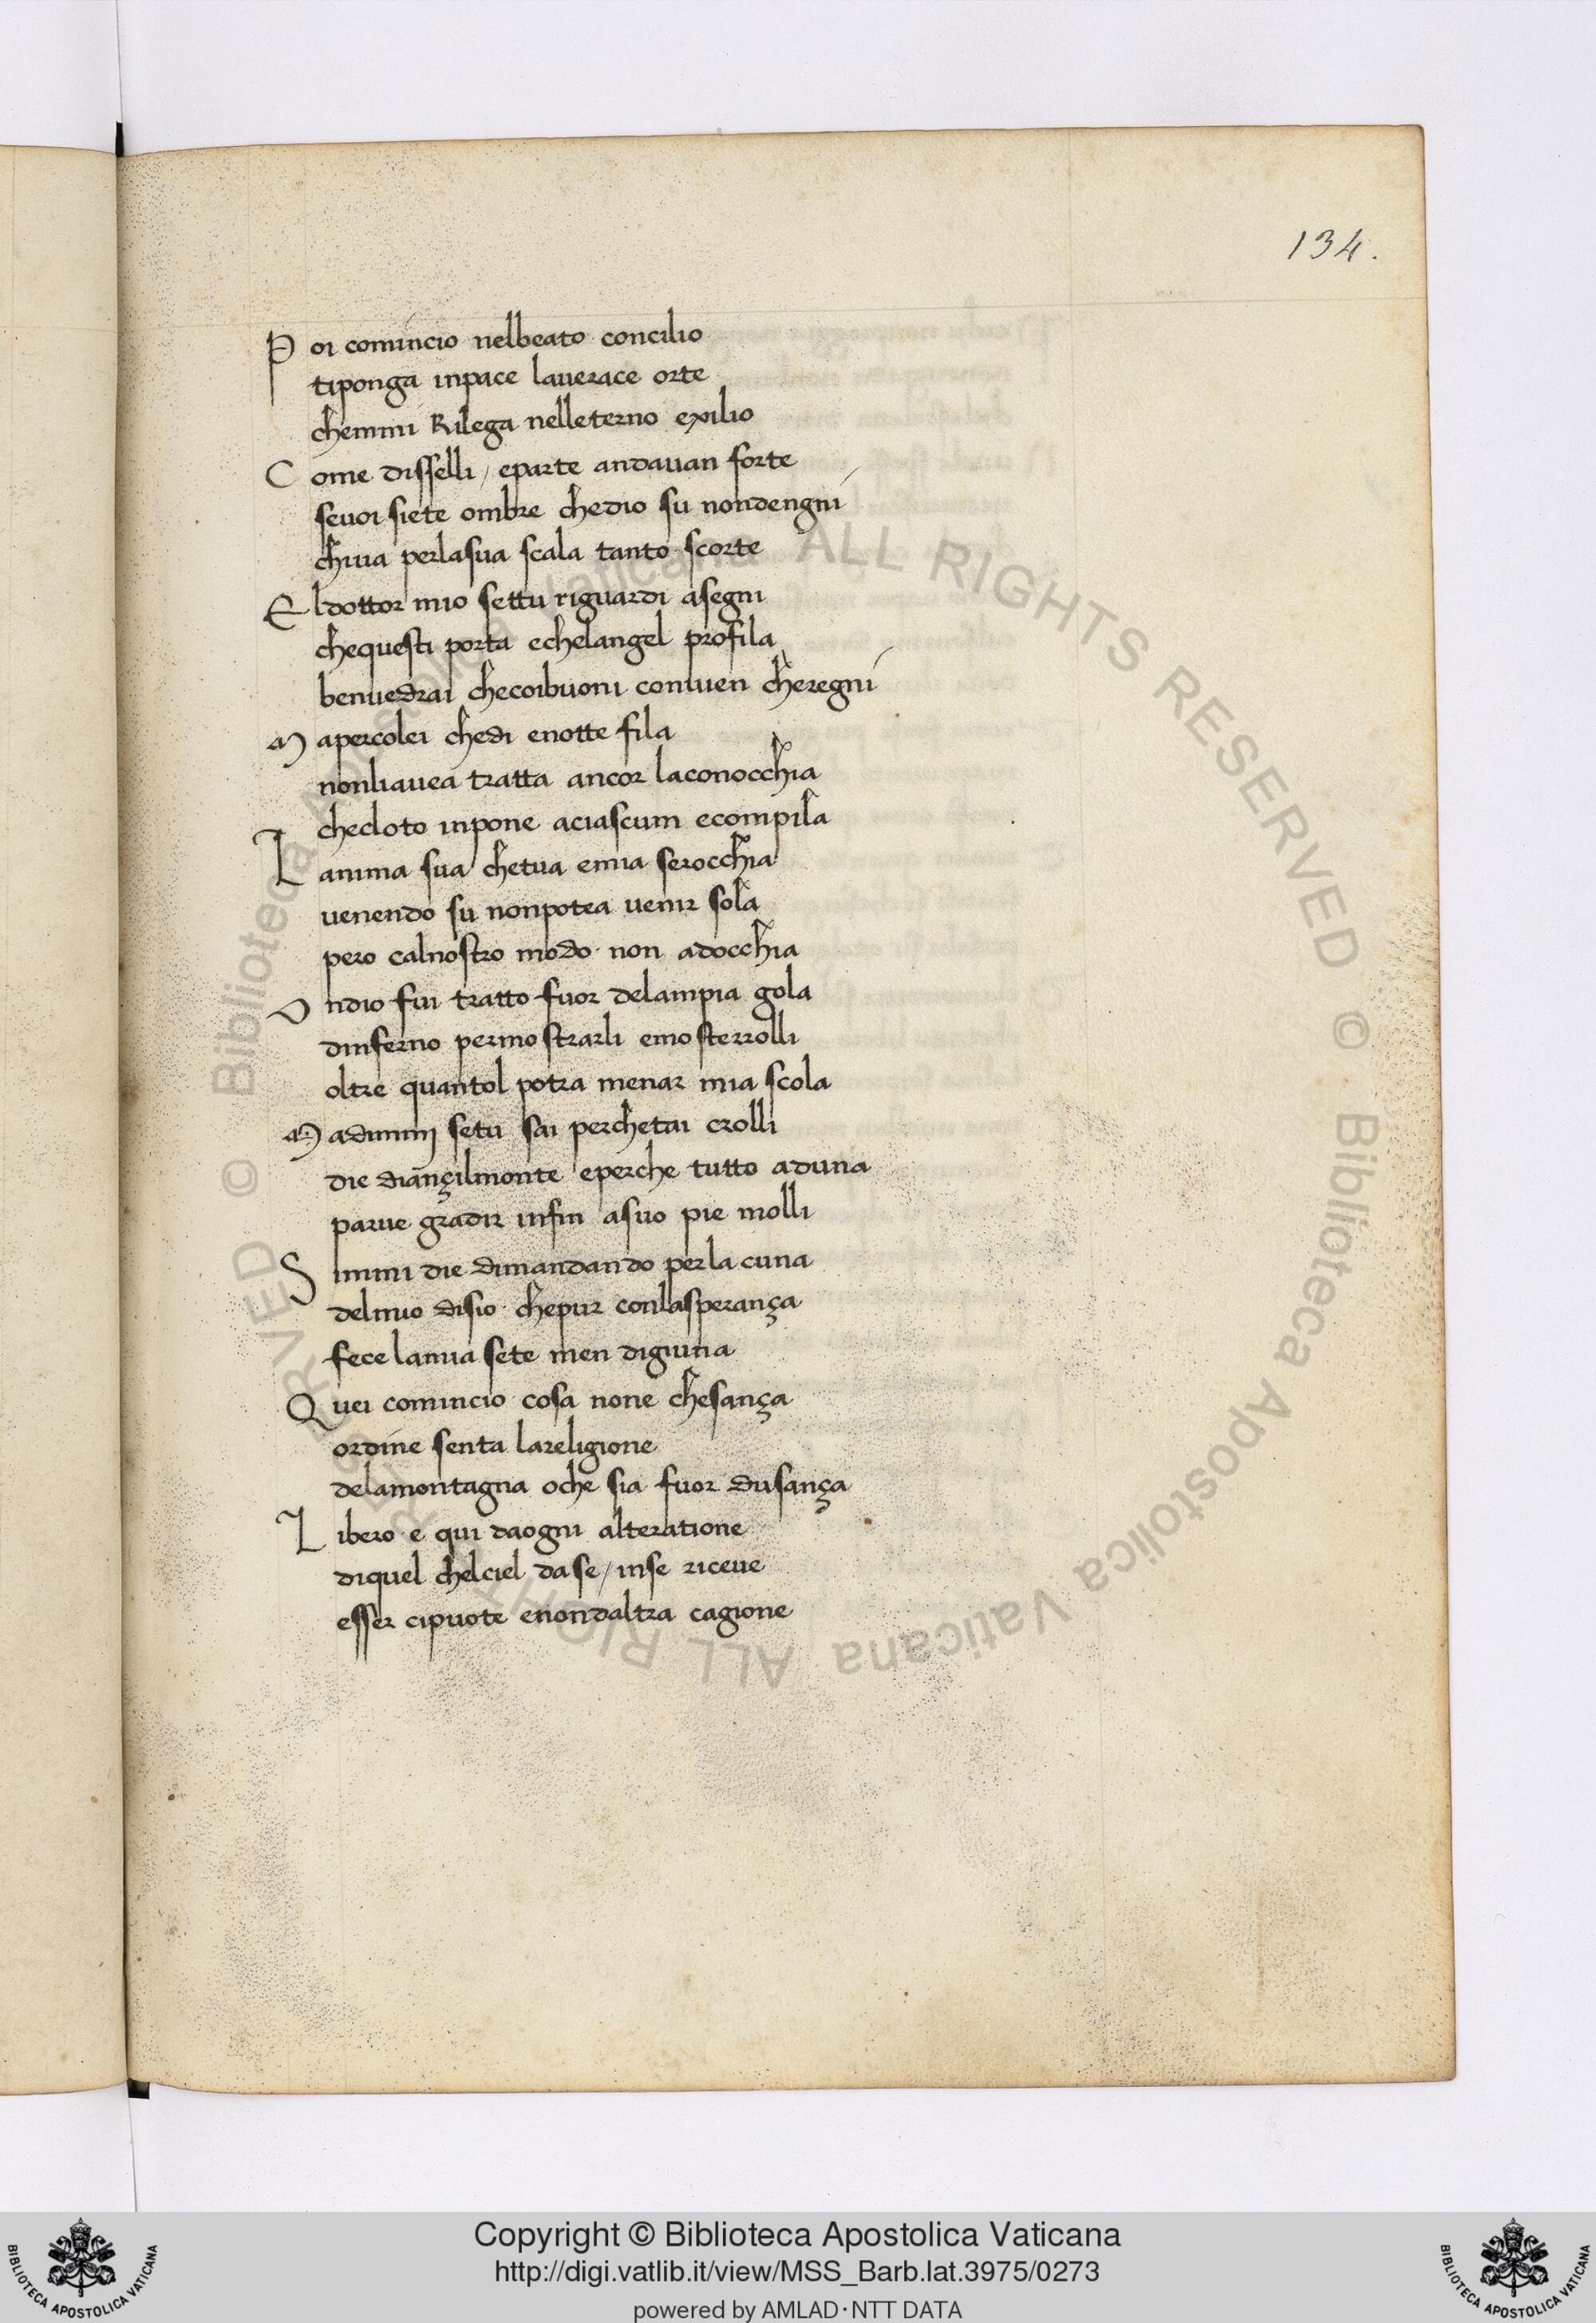 134.
P oi comincio nelbeato concilio
tiponga inpace lauerace orte
chemmi Rilega nelleterno exilio
C ome disselli / eparte andauan forte
seuoi siete ombre chedio su nondengni
chiua perlasua scala tanto scorte
E ldottor mio settu riguardi asegni
chequesti porta echelangel profila
benuedrai checoibuoni conuien cheregni
M apercolei chedi enotte fila
nonliauea tratta ancor laconocchia
checloto inpone aciascum ecompila
L anima sua chetua emia serocchia
uenendo su nonpotea uenir sola
pero calnostro modo non adocchia
O ndio fui tratto fuor delampia gola
dinferno permostrarli emosterrolli
oltre quantol potra menar mia scola
M adimmj setu sai perchetai crolli
die diançilmonte eperche tutto aduna
parue gradir infin asuo pie molli
S immi die dimandando perla cuna
delmio disio chepur conlasperança
fece lamia sete men digiuna
Q uei comincio cosa none chesança
ordine senta lareligione
delamontagna oche sia fuor dusança
L ibero e qui daogni alteratione
diquel chelciel dase / inse riceue
esser cipuote enondaltra cagione
© Biblioteca Apostolica Vaticana ALL RIGHTS RESERVED © Biblioteca Apostolica Vaticana ALL RIGHTS RESERVED
Copyright © Biblioteca Apostolica Vaticana
http://digi.vatlib.it/view/MSS_Barb.lat.3975/0273
powered by AMLAD·NTT DATA
BIBLIOTECA APOSTOLICA VATICANA
BIBLIOTECA APOSTOLICA VATICANA